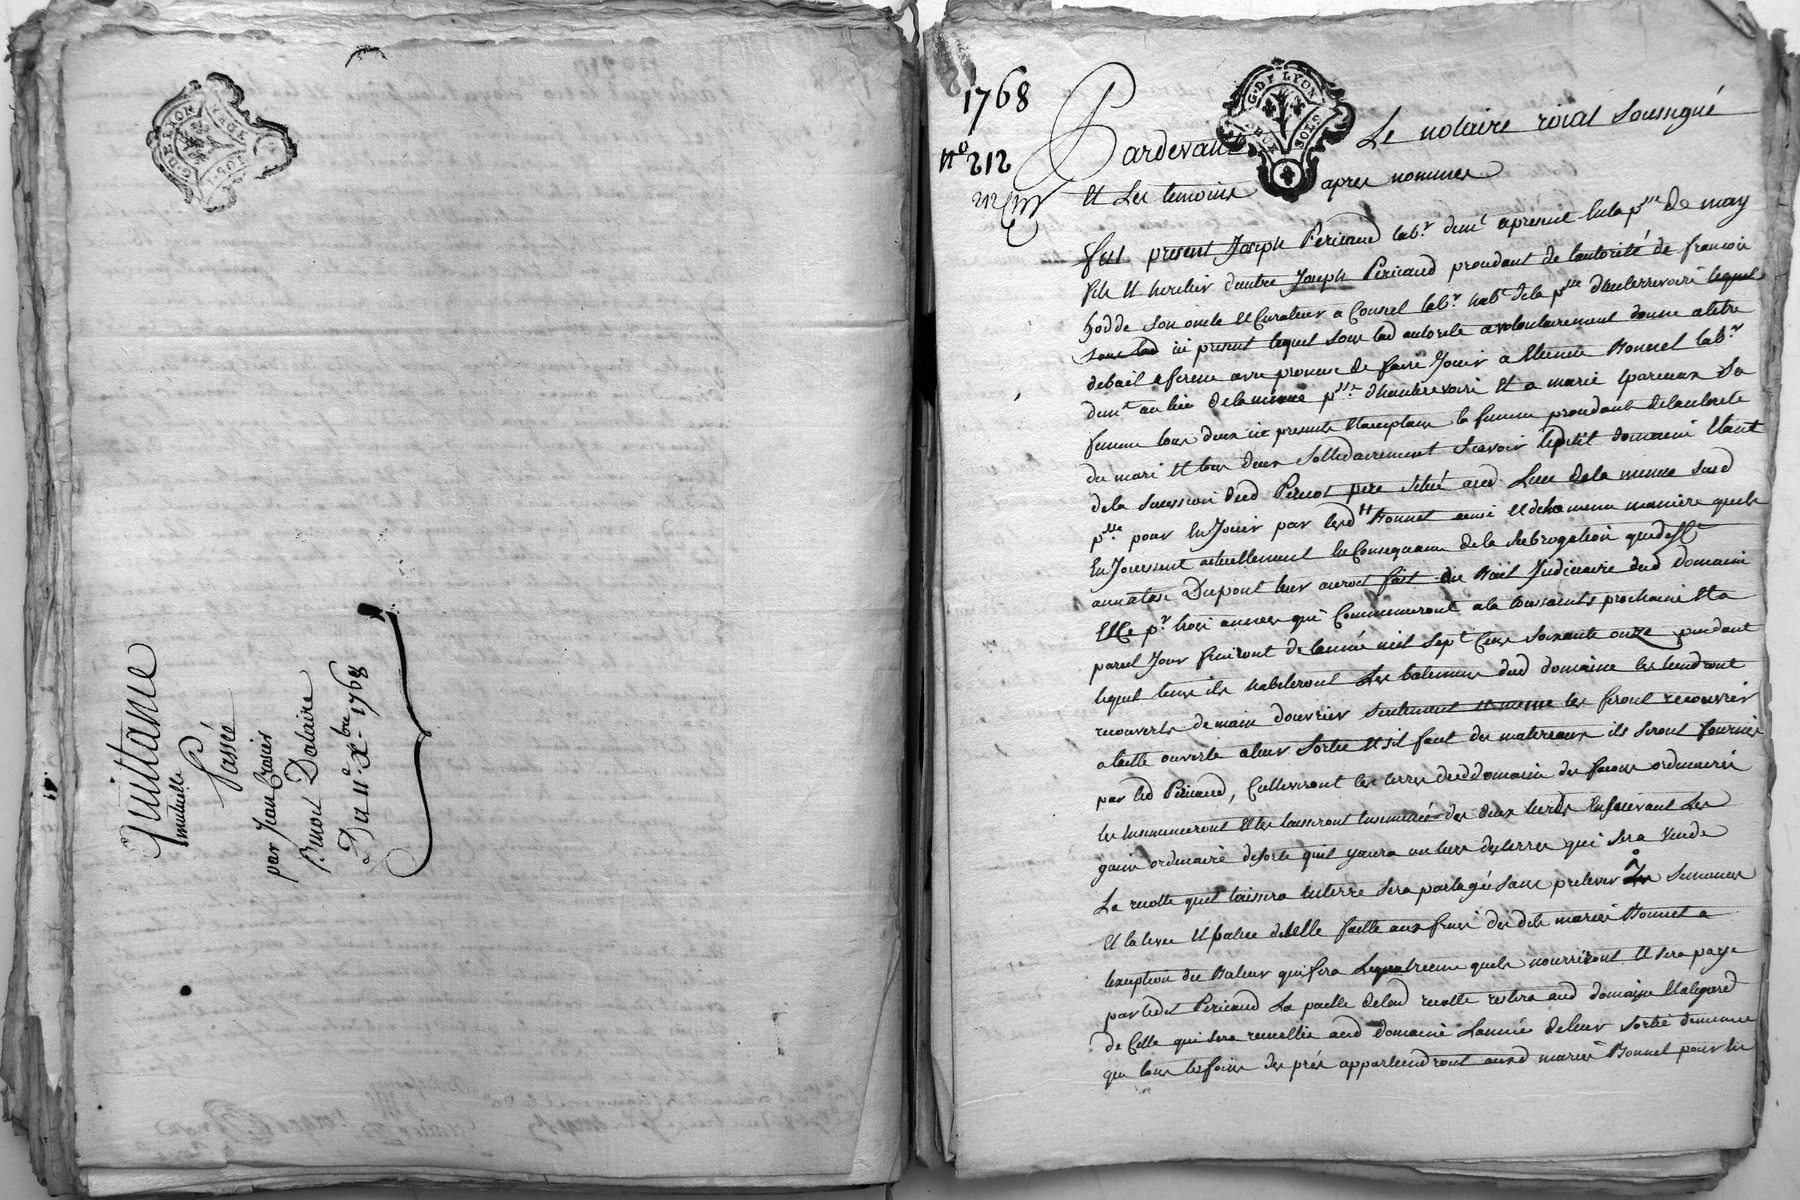 G. DE LYON
Quittance
mutuelle
Passée
par Jean Crozier
Benoit Dalaire
Du 11e Xbre 1768
1768
No 212
212
G. DE LYON
SOLS
Pardevant Le notaire roial soussigné
et Les temoins apres nommes
fut present Joseph Pericaud labr demt a present en la psse de may
fils et heritier dautre Joseph Pericaud procedant de lautorité de francois
hodde son oncle et Curateur a Conseil labr habt de la psse dhauterivoire lequel
sous lad ici present lequel sous lad autorité a volontairement donné a titre
de bail a ferme avec promesse de faire Jouir a Etienne Bonnet labr
demt au lieu de la meme psse dhauterivoire et a marie sa
femme tous deux ici presents et acceptans la femme procedant de lautorité
du mari et tous deux sollidairement scavoir le petit domaine etant
de la succession dud pere situé aud Lieu de la meme susd
psse pour en Jouir par lesd Bonnet ainsi et de la meme maniere quils
En Jouissent actuellement en Consequence de la subrogation que
Dupont leur auroit fait du Bail Judiciaire dud domaine
Et Ce pr trois années qui Commenceront a la toussaints prochaine et a
pareil Jour finiront de lannée mil sept Cens soixante onze pendant
lequel tems ils habiteront Les batimens dud domaine les tiendront
recouverts de main douvrier seulement et meme les feront recouvrir
a taille ouverte a leur sortie et sil faut des materiaux ils seront fournis
par led Pericaud, Cultiveront les terres dud domaine des facons ordinaires
les ensemenceront et les laisseront ensemencées des deux tiers Ensuivant Les
gain ordinaire de sorte quil y aura un tiers des terres qui sera vuide
La recolte quil laissera en terre sera partagée sans prelever semences
et la levée et faite aux frais desdits mariés Bonnet a
lexception du Bateur qui sera quils nourriront et sera payé
par ledit Pericaud La paille de lad recolte restera aud domaine et a legard
de Celle qui sera recueillie aud domaine Lannée de leur sortie demeure
que tous les foins des prés appartiendront auxd mariés Bonnet pour les